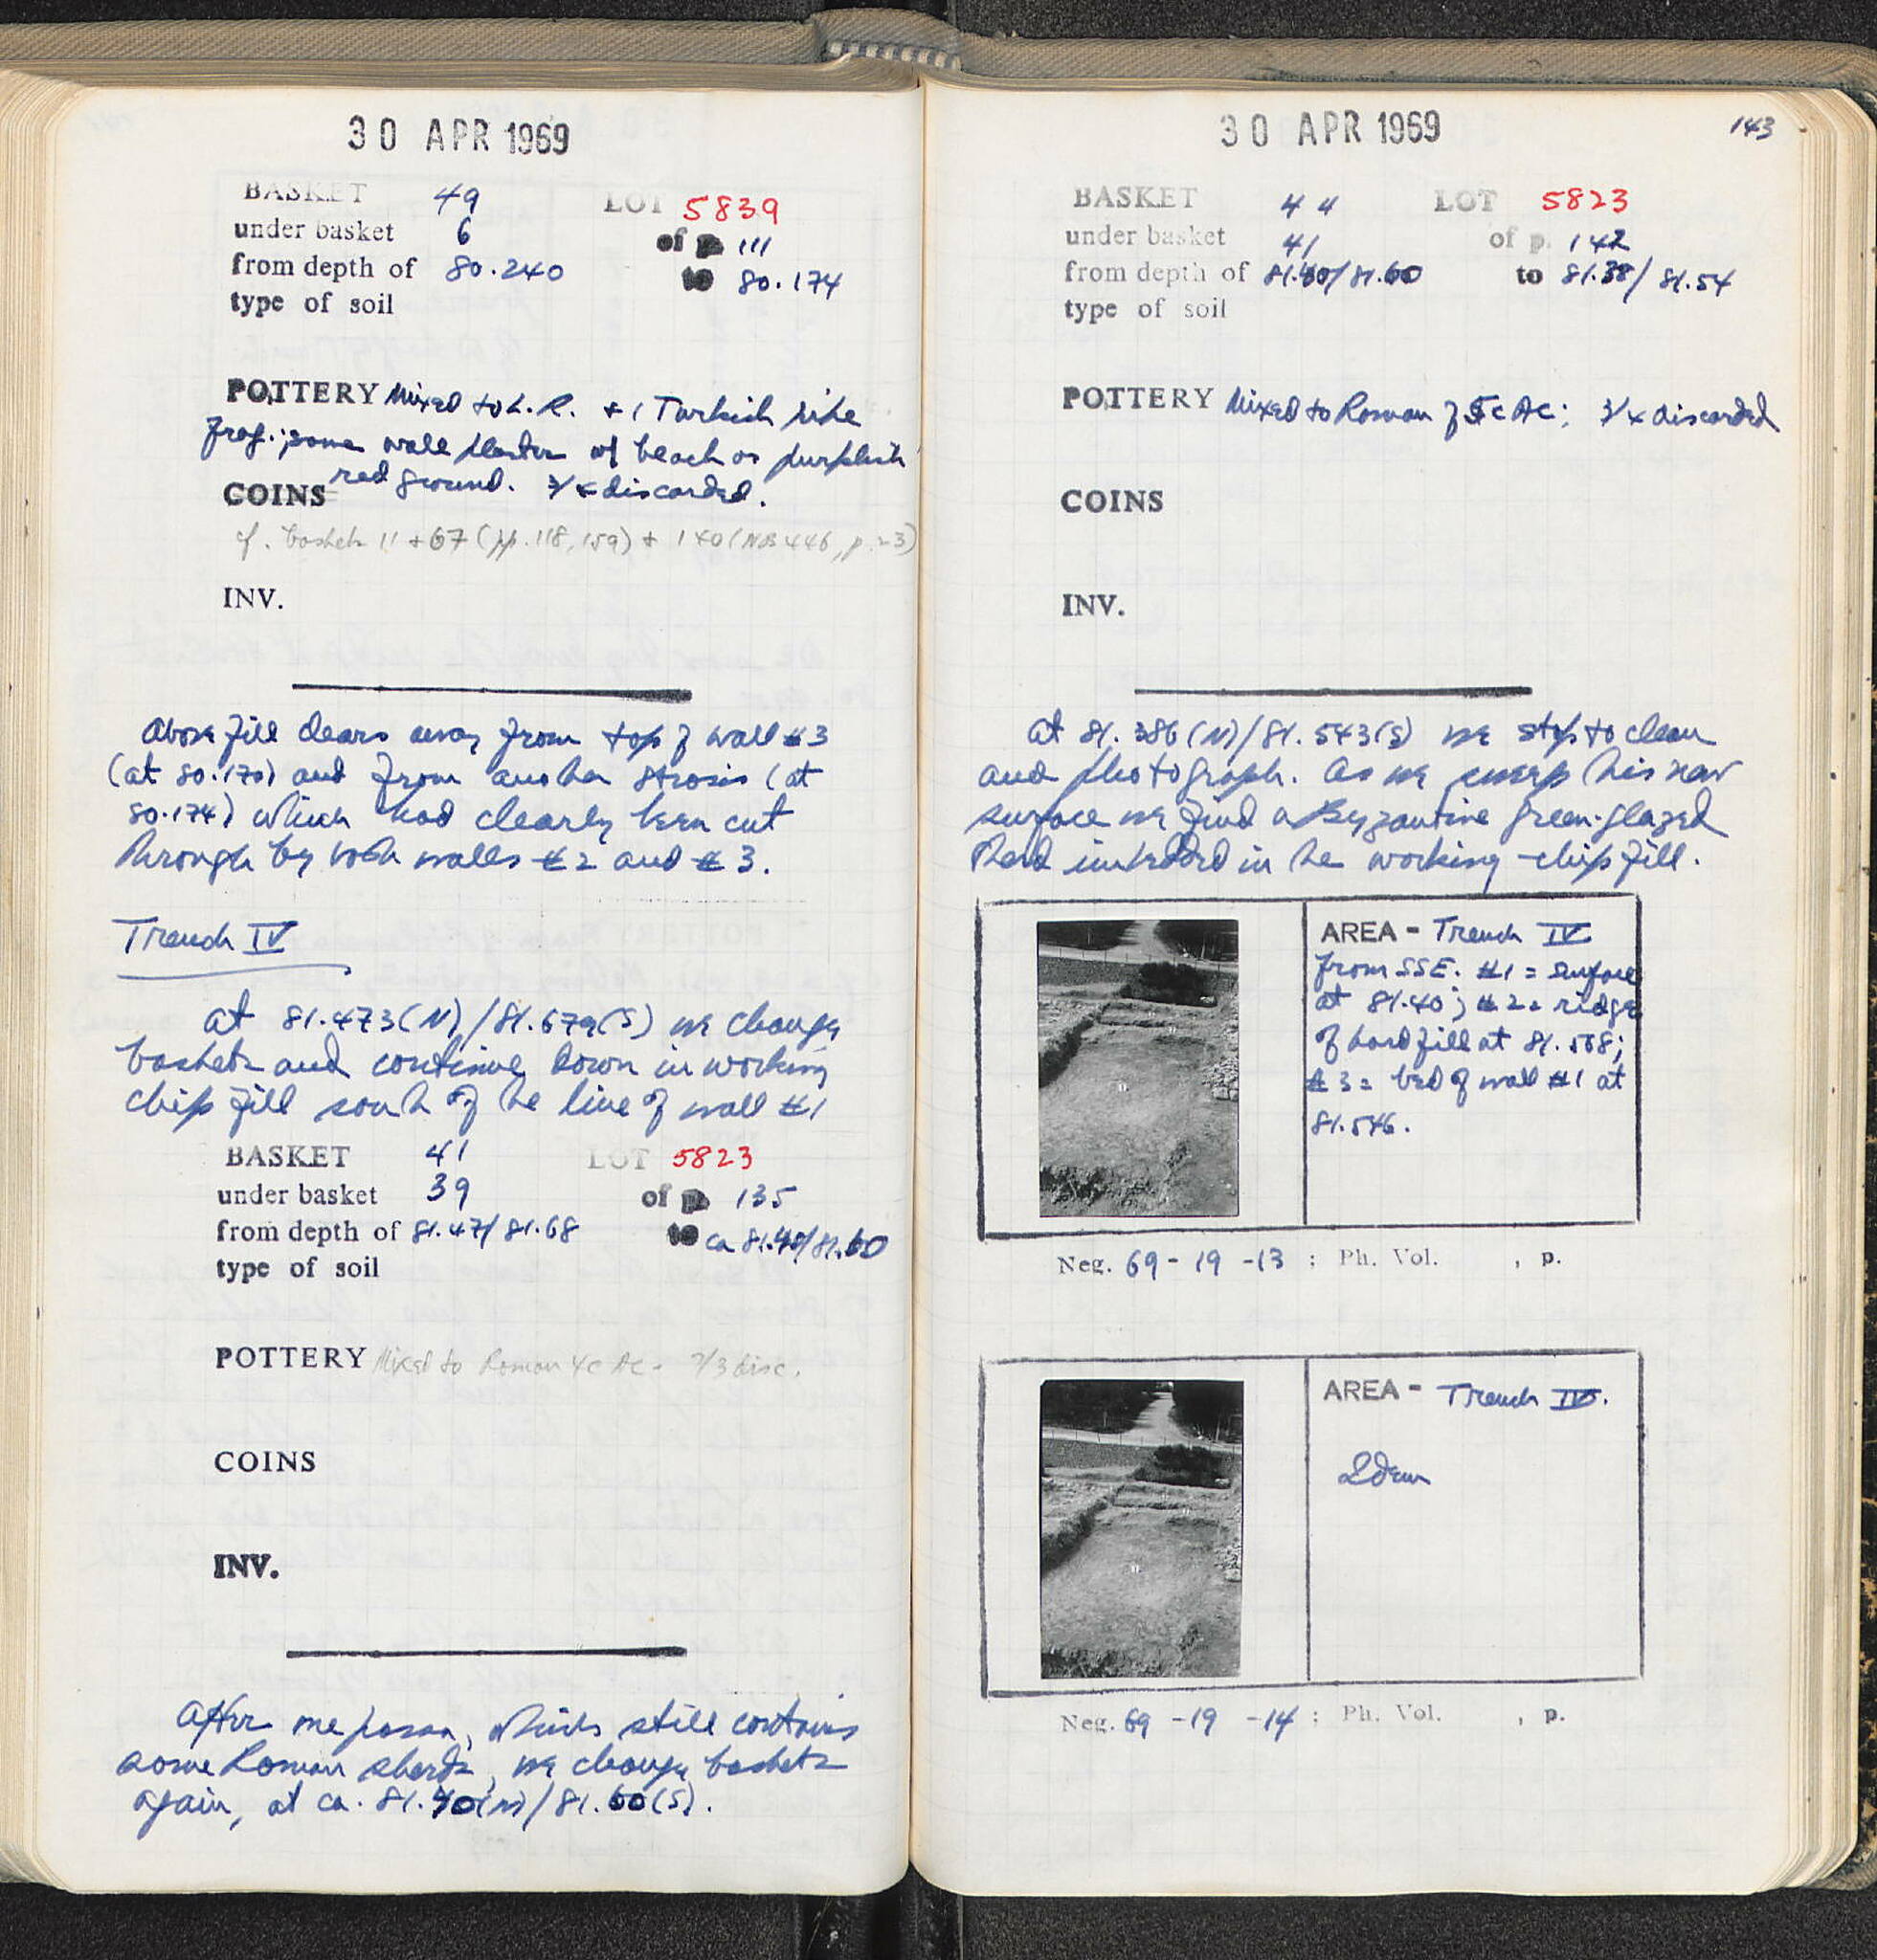 30 APR 1969
BASKET 49 LOT 5839
under basket 6 of p. 111
from depth of 80.240 to 80.174
type of soil
POTTERY Mixed to L.R. + 1 Turkish
frag.; some wall plaster w/ beach or purplish
red ground. 3/4 discarded.
COINS
cf. baskets 11 + 67 (pp. 118, 159) + 140 (NB 446, p. 23)
INV.
Above fill clears away from top of wall #3
(at 80.170) and from another strosis (at
80.174) which had clearly been cut
through by both walls #2 and #3.
Trench IV
At 81.473(N)/81.679(S) we change
baskets and continue down in working
chip fill south of the line of wall #1
BASKET 41 LOT 5823
under basket 39 of p. 135
from depth of 81.47/81.68 to ca 81.40/81.60
type of soil
POTTERY Mixed to Roman 4c AC - 2/3 disc.
COINS
INV.
After one passa, which still contains
some Roman sherds, we change baskets
again, at ca. 81.40(N)/81.60(S).
30 APR 1969
143
BASKET 44 LOT 5823
under basket 41 of p. 142
from depth of 81.40/81.60 to 81.38/81.54
type of soil
POTTERY Mixed to Roman of 5c AC; 3/4 discarded
COINS
INV.
At 81.386(N)/81.543(S) we stop to clean
and photograph. As we sweep this new
surface we find a Byzantine green-glazed
sherd imbedded in the working-chip fill.
AREA - Trench IV
from SSE. #1 = surface
at 81.40; #2 = ridge
of hard fill at 81.558;
#3 = bed of wall #1 at
81.546.
Neg. 69-19-13; Ph. Vol. , p.
AREA - Trench IV.
Idem
Neg. 69-19-14; Ph. Vol. , p.